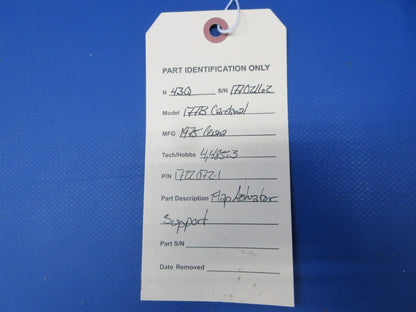 PART IDENTIFICATION ONLY
N 43Q S/N 17702162
Model 177B Cardinal
MFG 1975 Cessna
Tach/Hobbs 4,485.3
P/N 1722072-1
Part Description Flap Actuator
Support
Part S/N
Date Removed